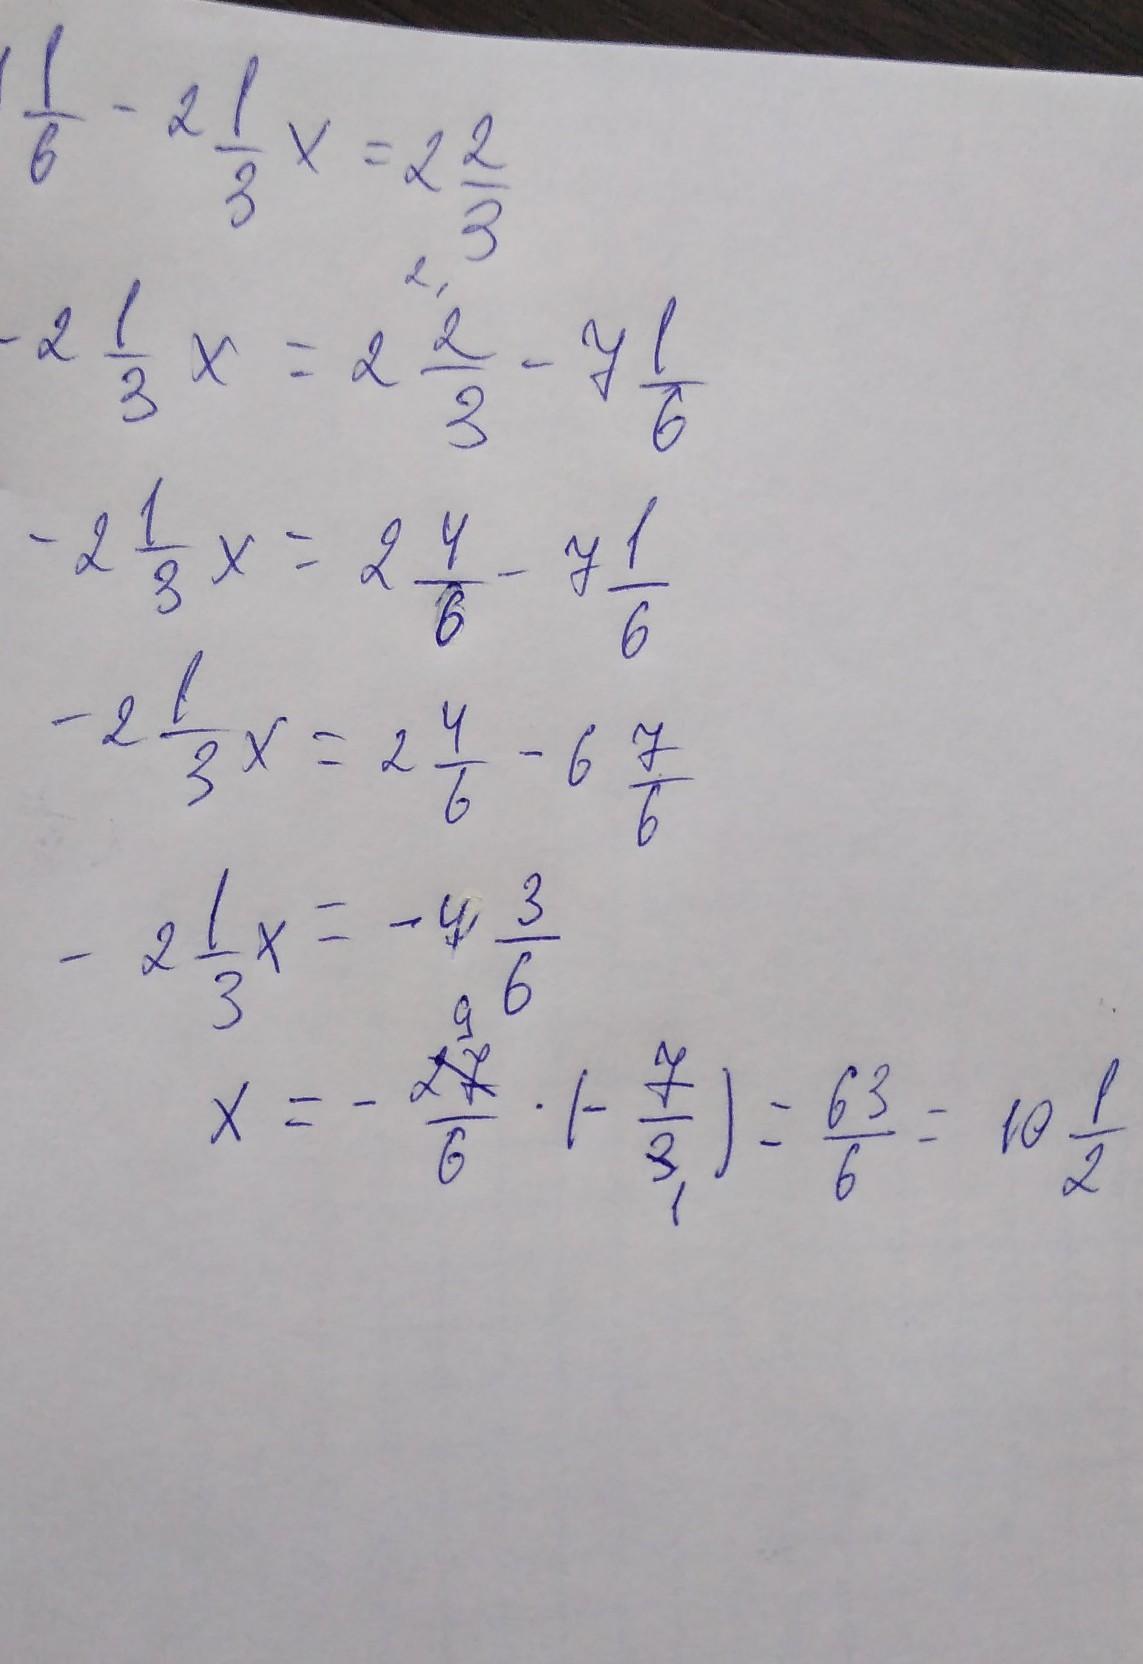 1/6 - 2 1/3 x = 2 2/3
- 2 1/3 x = 2 2/3 - 7 1/6
- 2 1/3 x = 2 4/6 - 7 1/6
- 2 1/3 x = 2 4/6 - 6 7/6
- 2 1/3 x = - 4 3/6
x = - 27/6 · (- 7/3) = 63/6 = 10 1/2